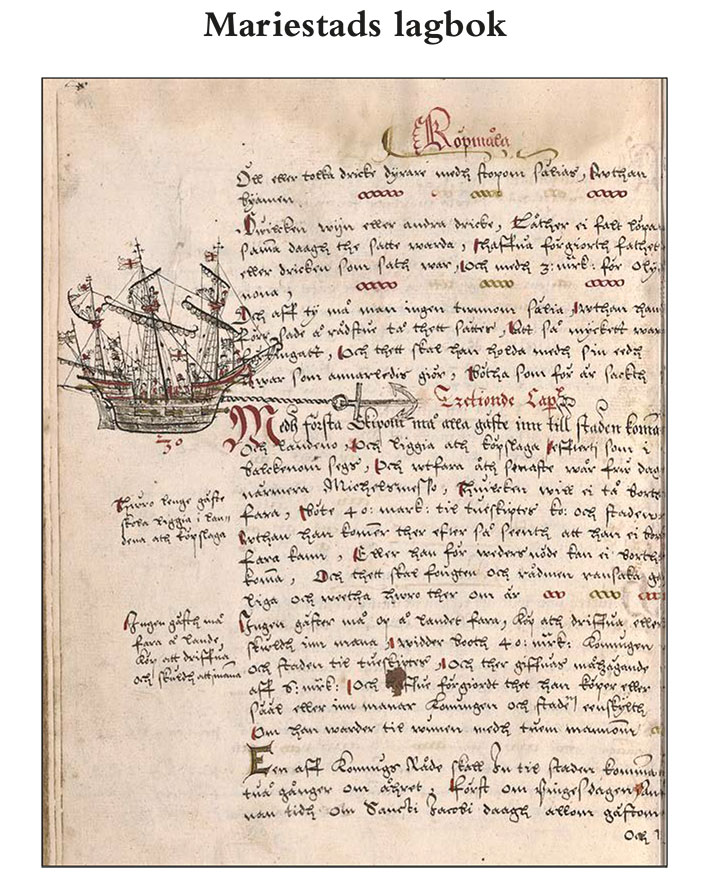 Mariestads lagbok
Köpmåla
Öll eller tolka dricke dyrare medh stopom sälias, Uthan
byamen
Hwilcken wijn eller andra dricke, Läther ei falt löpa
sama daagh the satte warda, haffua förgiorth fathet
eller dricken som sath war, Och medh 3: mrk: för Oly
nona,
Och aff ty må man ingen tunnom sälia, Uthan han
före sade å rådstuu tå thett sättes, Att så myckett war
ingatt, Och thett skal han holda medh sin eedh
hwar som annarledis giör, Bötha som för är sackth
Tretionde Cap
30
Medh första Skipom må alla gäste inn till staden komma
Och landeno, Och liggia ath köpslaga effterti som i
balckenom segs, Och utfara åth senaste wår fru dag
närmera Michelsmesso, Huilcken will ei tå borth
fara, Böte 40: mark: til treskiptes ko: och staden
Uthan han kommer ther efter så seenth att han ei bor
fara kann, Eller han för weders nöde kan ei borth
komma, Och thet skal fougten och rådmen ransaka
liga och weetha hwro ther om är
Hwro lenge gäste
skola liggia i lan=
dena ath köpslaga
Ingen gäster må op å landet fara, Köp ath driffua, eller
skuldh inn mana, widder booth 40: mrk: Konnugen
och staden til treskiptes, Och ther giffuas målzägande
aff 6: mrk: Och haffue förgiordt thet han köper eller
säal eller inn manar Konningen och stade enskylth
Om han warder til wunnen medh tuem mannom
Ingen gästh må
fara å lande
Köp att driffua
och skuldh att mana
Een aff Konnugs Råde skall In til staden komma
tuå gånger om åhret, Först om Pingesdagen
nan tidh Om Sancti Jacobi daagh allom gästom
Och